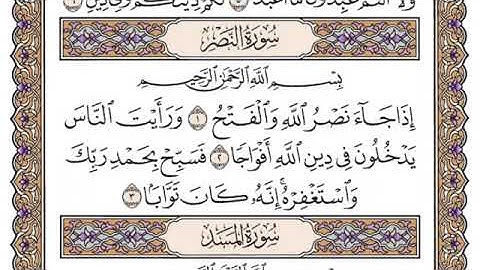 ولا أنتم عبدون ما أعبد ٥ لكم دينكم ولي دين ٦
سورة النصر
بسم الله الرحمن الرحيم
إِذَا جَآءَ نَصْرُ ٱللَّهِ وَٱلْفَتْحُ ١ وَرَأَيْتَ ٱلنَّاسَ
يَدْخُلُونَ فِى دِينِ ٱللَّهِ أَفْوَاجًا ٢ فَسَبِّحْ بِحَمْدِ رَبِّكَ
وَٱسْتَغْفِرْهُ ۚ إِنَّهُۥ كَانَ تَوَّابًۢا ٣
سورة المسد